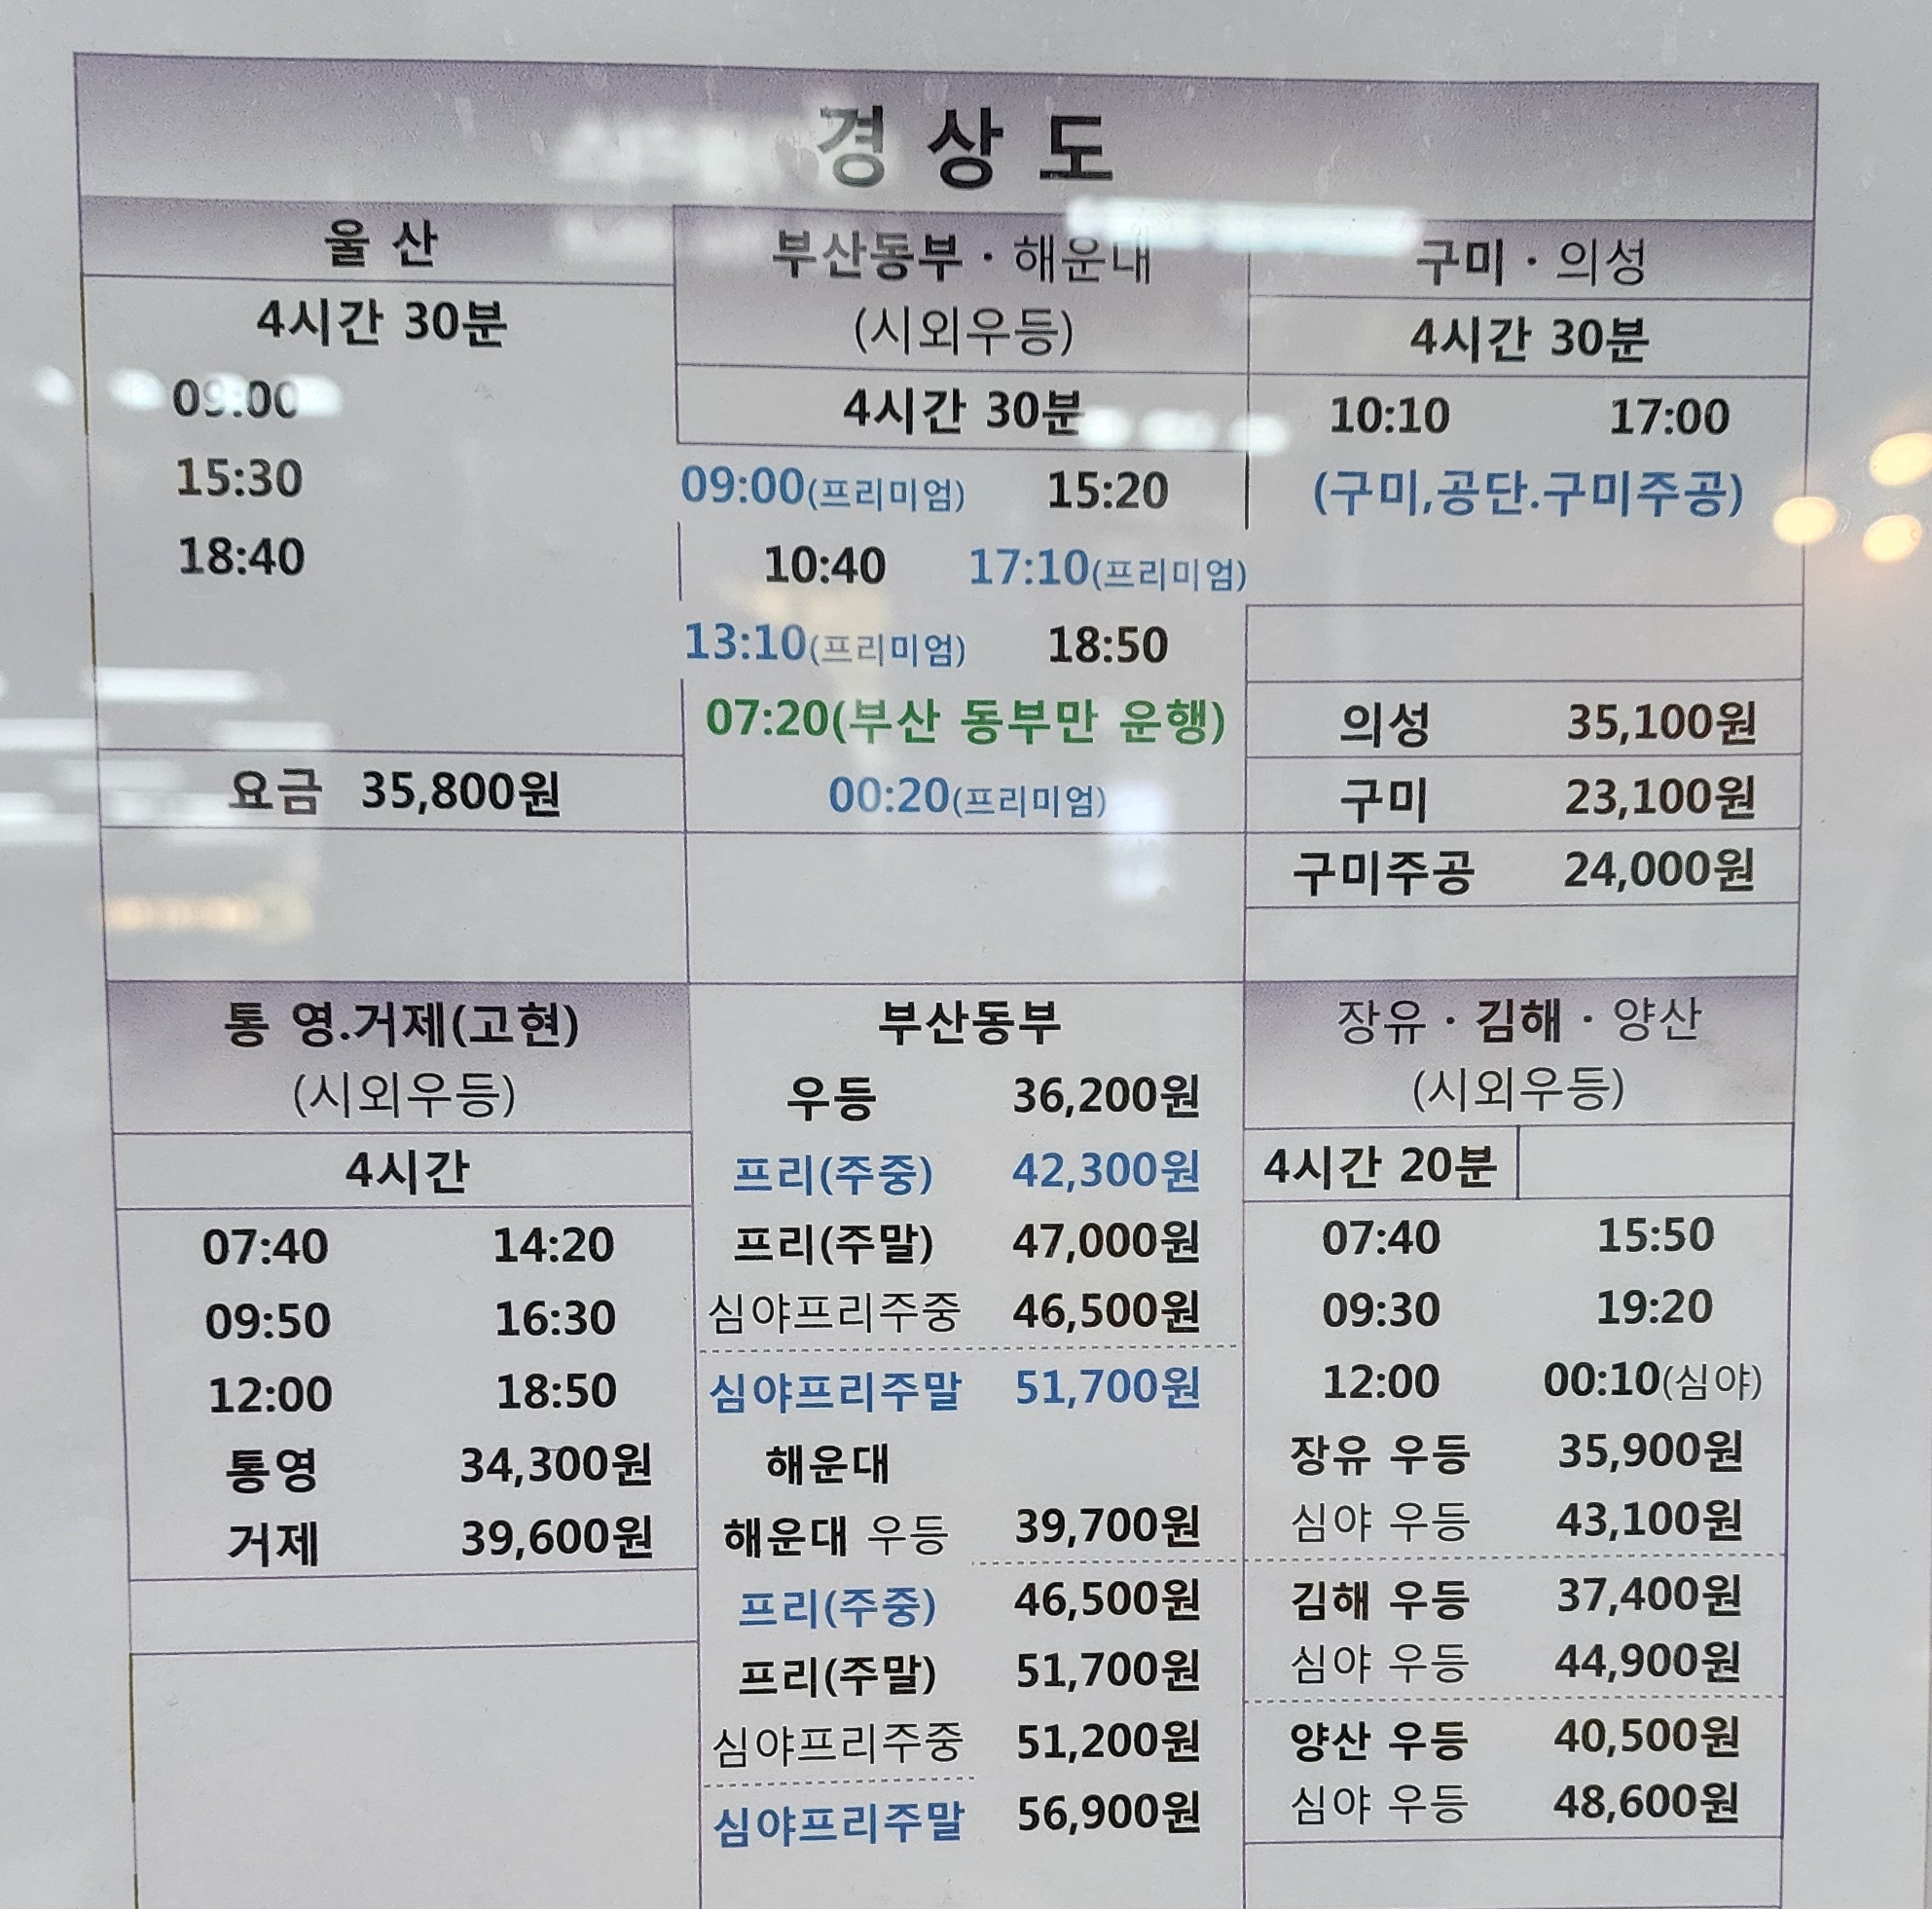 경 상 도
울 산
4시간 30분
09:00
15:30
18:40
요금 35,800원
부산동부 · 해운대
(시외우등)
4시간 30분
09:00(프리미엄) 15:20
10:40 17:10(프리미엄)
13:10(프리미엄) 18:50
07:20(부산 동부만 운행)
00:20(프리미엄)
구미 · 의성
4시간 30분
10:10 17:00
(구미,공단.구미주공)
의성 35,100원
구미 23,100원
구미주공 24,000원
통 영.거제(고현)
(시외우등)
4시간
07:40 14:20
09:50 16:30
12:00 18:50
통영 34,300원
거제 39,600원
부산동부
우등 36,200원
프리(주중) 42,300원
프리(주말) 47,000원
심야프리주중 46,500원
심야프리주말 51,700원
해운대
해운대 우등 39,700원
프리(주중) 46,500원
프리(주말) 51,700원
심야프리주중 51,200원
심야프리주말 56,900원
장유 · 김해 · 양산
(시외우등)
4시간 20분
07:40 15:50
09:30 19:20
12:00 00:10(심야)
장유 우등 35,900원
심야 우등 43,100원
김해 우등 37,400원
심야 우등 44,900원
양산 우등 40,500원
심야 우등 48,600원